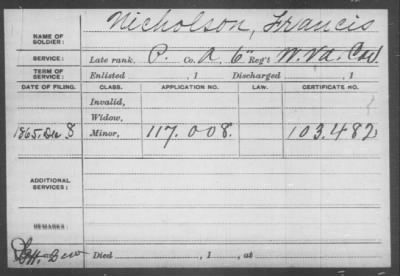 NAME OF SOLDIER: Nicholson, Francis
SERVICE: Late rank, P. Co. A, 6" Reg't W. Va. Cav
TERM OF SERVICE: Enlisted , 1 Discharged , 1
DATE OF FILING. CLASS. APPLICATION NO. LAW. CERTIFICATE NO.
Invalid,
Widow,
1865 Dec 8 Minor, 117.008. 103.482
ADDITIONAL SERVICES:
REMARKS:
Died , 1 , at